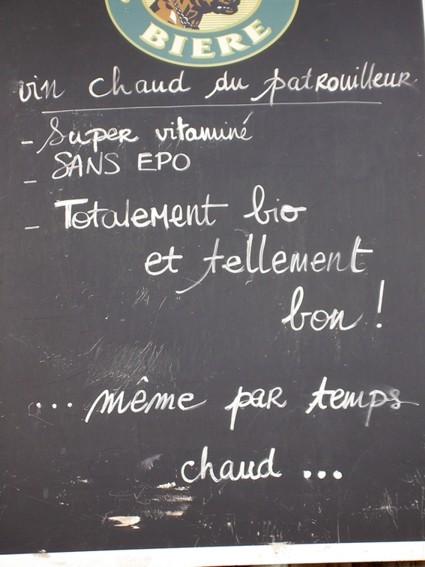 BIERE
vin chaud du patrouilleur
- Super vitaminé
- SANS EPO
- Totalement bio
et tellement
bon !
... même par temps
chaud ...